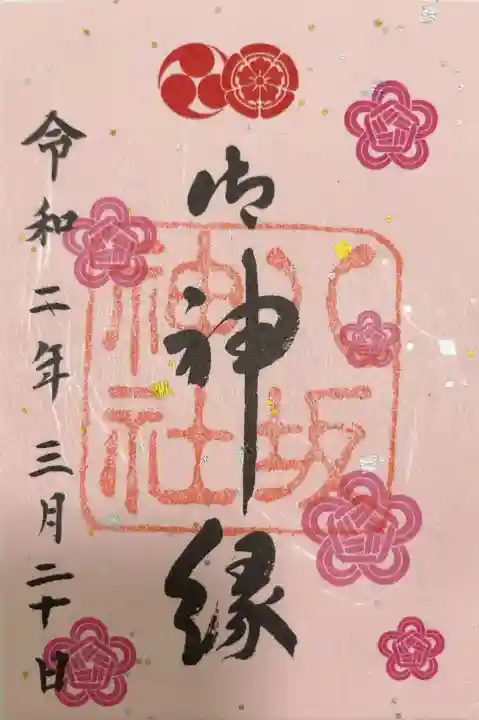 御神縁
八坂
神社
令和二年三月二十日